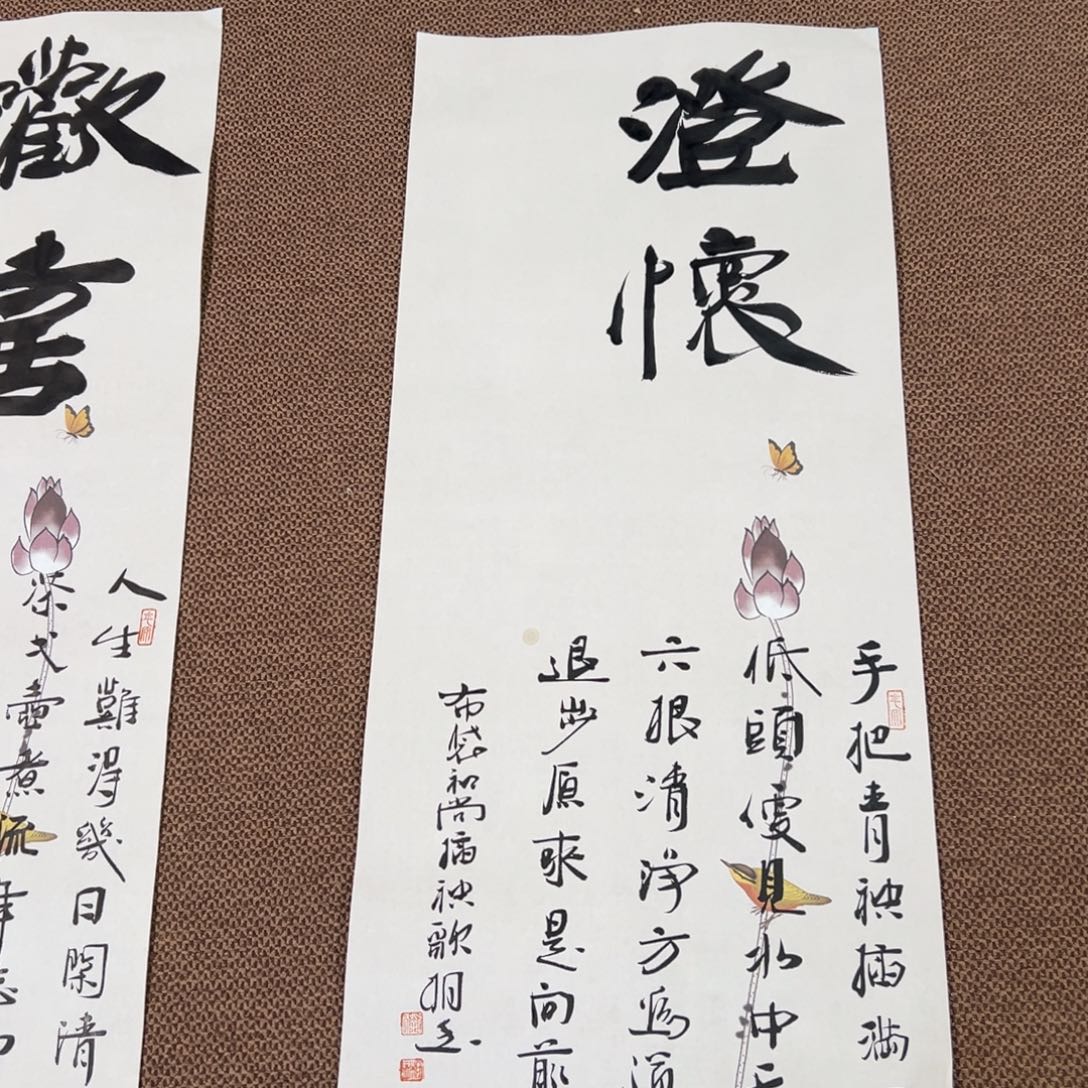 澄
懷
手把青秧插滿
低頭便見水中天
六根清淨方為道
退步原來是向前
布袋和尚插秧歌
歡
喜
人生難得幾日閑清
茶弋壺煮流年